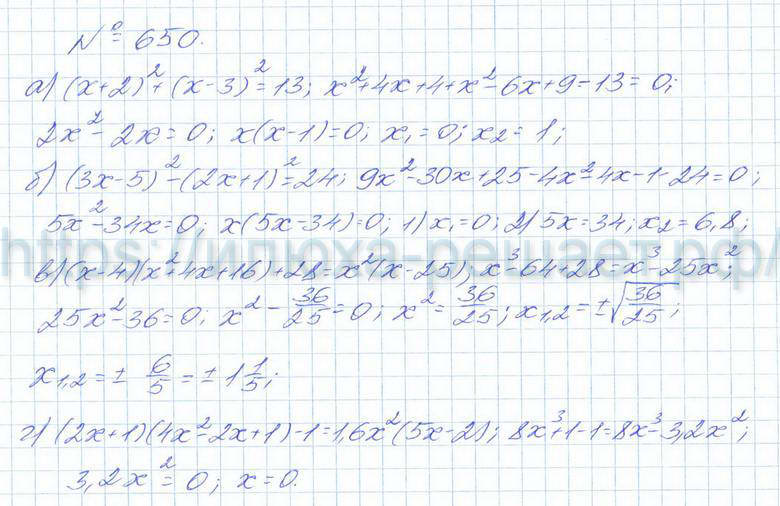 № 650.
а) (x+2)²+(x-3)²=13; x²+4x+4+x²-6x+9-13=0;
2x²-2x=0; x(x-1)=0; x₁=0; x₂=1;
б) (3x-5)²-(2x+1)²=24; 9x²-30x+25-4x²-4x-1-24=0;
5x²-34x=0; x(5x-34)=0; 1) x₁=0; 2) 5x=34; x₂=6,8;
https://илюха-решает.рф/
в) (x-4)(x²+4x+16)+28=x²(x-25); x³-64+28=x³-25x²;
25x²-36=0; x²-36/25=0; x²=36/25; x₁,₂=±√36/25;
x₁,₂=± 6/5=±1 1/5;
г) (2x+1)(4x²-2x+1)-1=1,6x²(5x-2); 8x³+1-1=8x³-3,2x²;
3,2x²=0; x=0.